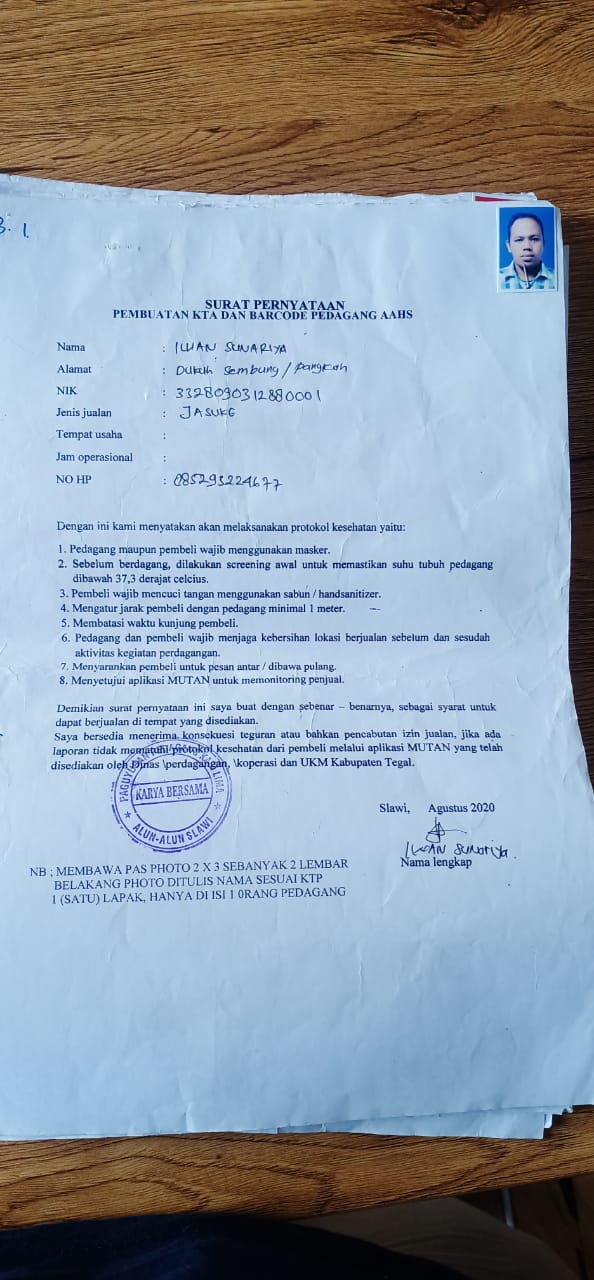 3. 1.
SURAT PERNYATAAN
PEMBUATAN KTA DAN BARCODE PEDAGANG AAHS
Nama : ILWAN SUNARIYA
Alamat : Dukuh Sembung / Pangkah
NIK : 3328090312880001
Jenis jualan : JASUKE
Tempat usaha :
Jam operasional :
NO HP : 085293224677
Dengan ini kami menyatakan akan melaksanakan protokol kesehatan yaitu:
1. Pedagang maupun pembeli wajib menggunakan masker.
2. Sebelum berdagang, dilakukan screening awal untuk memastikan suhu tubuh pedagang
dibawah 37,3 derajat celcius.
3. Pembeli wajib mencuci tangan menggunakan sabun / handsanitizer.
4. Mengatur jarak pembeli dengan pedagang minimal 1 meter.
5. Membatasi waktu kunjung pembeli.
6. Pedagang dan pembeli wajib menjaga kebersihan lokasi berjualan sebelum dan sesudah
aktivitas kegiatan perdagangan.
7. Menyarankan pembeli untuk pesan antar / dibawa pulang.
8. Menyetujui aplikasi MUTAN untuk memonitoring penjual.
Demikian surat pernyataan ini saya buat dengan sebenar – benarnya, sebagai syarat untuk
dapat berjualan di tempat yang disediakan.
Saya bersedia menerima konsekuesi teguran atau bahkan pencabutan izin jualan, jika ada
laporan tidak mematuhi protokol kesehatan dari pembeli melalui aplikasi MUTAN yang telah
disediakan oleh Dinas \perdagangan, \koperasi dan UKM Kabupaten Tegal.
KARYA BERSAMA
ALUN-ALUN SLAWI
Slawi, Agustus 2020
ILWAN SUNARIYA.
Nama lengkap
NB ; MEMBAWA PAS PHOTO 2 X 3 SEBANYAK 2 LEMBAR
BELAKANG PHOTO DITULIS NAMA SESUAI KTP
1 (SATU) LAPAK, HANYA DI ISI 1 0RANG PEDAGANG